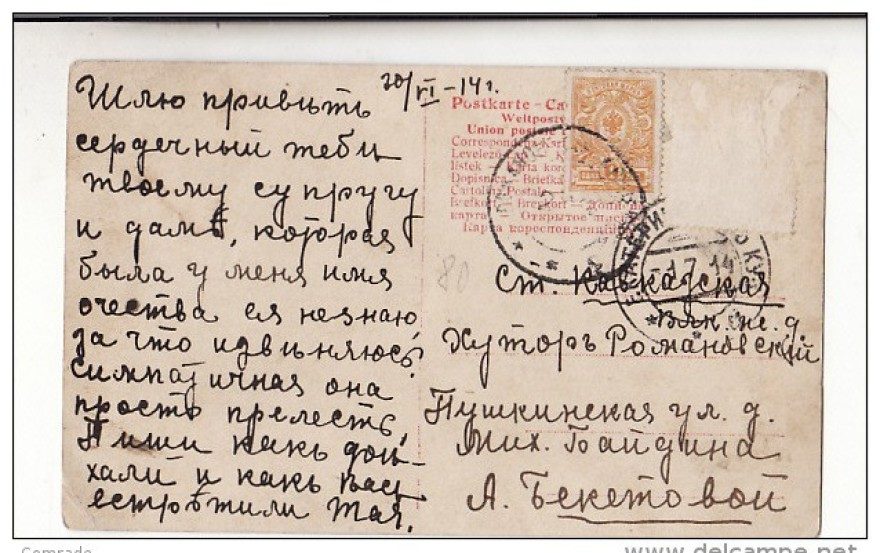 20/VI – 14 г.
Шлю привить
сердечный теби
твоему супругу
и дамъ, которая
была у меня имя
очества ея незнаю,
за что идвиняюсь
симпатичная она
прость прелесть,
Пиши какъ дои-
хали и какъ васъ
встротили Тая.
Postkarte – Ca
Weltpostv
Union postale
Levelező
listek – Karta kore
Dopisnica – Briefka
Cartolina Postale
карта – Открытое пис
Карта корреспонденційн
Ст. Кавказская
Влк. ж. д
Хуторъ Романовскій
Пушкинская ул. д.
Мих. Байдина
А. Бекетовой
80
Comrade
www.delcampe.net